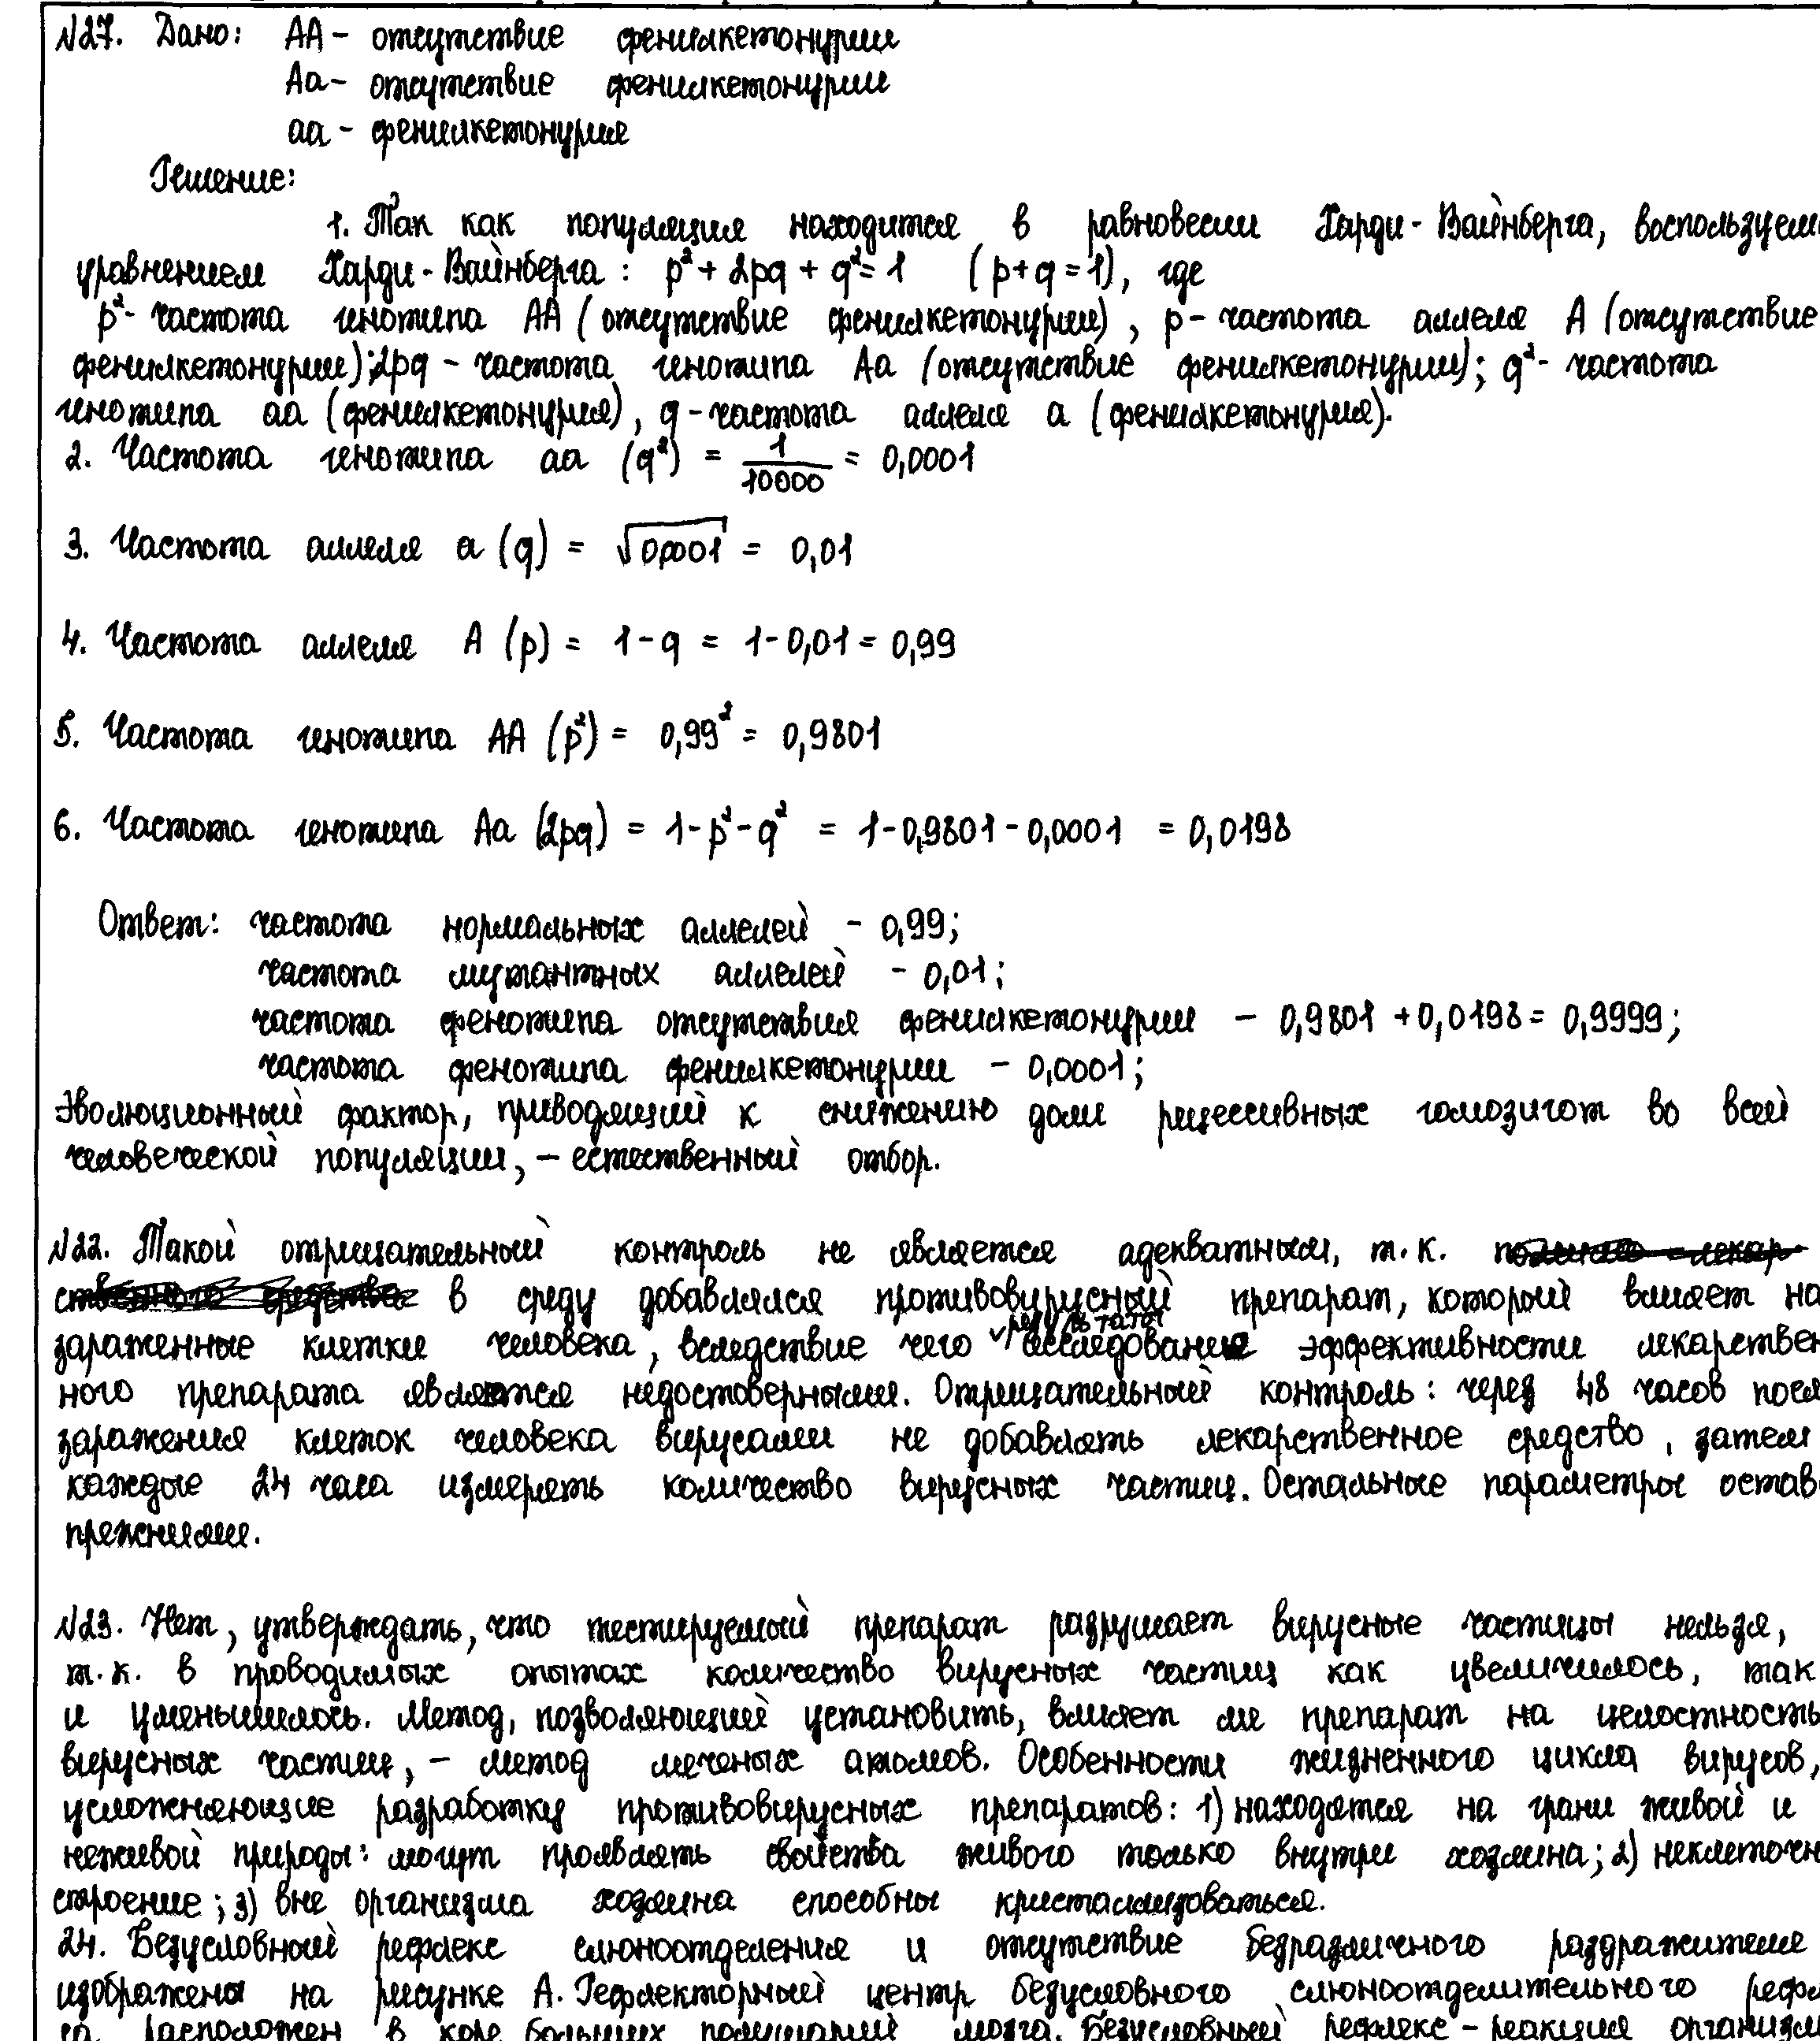 №27. Дано: АА - отсутствие фенилкетонурии
Аа - отсутствие фенилкетонурии
аа - фенилкетонурия
Решение:
1. Так как популяция находится в равновесии Харди-Вайнберга, воспользуем
уравнением Харди-Вайнберга: p²+2pq+q²=1 (p+q=1), где
p²- частота генотипа АА (отсутствие фенилкетонурии), p- частота аллеля А (отсутствие
фенилкетонурии); 2pq - частота генотипа Аа (отсутствие фенилкетонурии); q²- частота
генотипа аа (фенилкетонурия), q-частота аллеля а (фенилкетонурия).
2. Частота генотипа аа (q²) = 1/10000 = 0,0001
3. Частота аллеля а (q) = √0,0001 = 0,01
4. Частота аллеля А (p) = 1-q = 1-0,01=0,99
5. Частота генотипа АА (p²) = 0,99² = 0,9801
6. Частота генотипа Аа (2pq) = 1-p²-q² = 1-0,9801-0,0001 = 0,0198
Ответ: частота нормальных аллелей - 0,99;
частота мутантных аллелей - 0,01;
частота фенотипа отсутствия фенилкетонурии - 0,9801+0,0198=0,9999;
частота фенотипа фенилкетонурии - 0,0001;
Эволюционный фактор, приводящий к снижению доли рецессивных гомозигот во всей
человеческой популяции, - естественный отбор.
№22. Такой отрицательный контроль не является адекватным, т.к.
в среду добавлялся противовирусный препарат, который влияет на
зараженные клетки человека, вследствие чего результаты исследования эффективности лекарствен
ного препарата являются недостоверными. Отрицательный контроль: через 48 часов посл
заражения клеток человека вирусами не добавлять лекарственное средство, затем
каждые 24 часа измерять количество вирусных частиц. Остальные параметры остав
прежними.
№23. Нет, утверждать, что тестируемый препарат разрушает вирусные частицы нельзя,
т.к. в проводимых опытах количество вирусных частиц как увеличилось, так
и уменьшилось. Метод, позволяющий установить, влияет ли препарат на целостность
вирусных частиц, - метод меченых атомов. Особенности жизненного цикла вирусов,
усложняющие разработку противовирусных препаратов: 1) находятся на грани живой и
неживой природы: могут проявлять свойства живого только внутри хозяина; 2) неклеточн
строение; 3) вне организма хозяина способны кристаллизоваться.
24. Безусловный рефлекс слюноотделения и отсутствие безразличного раздражителя
изображены на рисунке А. Рефлекторный центр безусловного слюноотделительного рефл
са расположен в коре больших полушарий мозга. Безусловный рефлекс - реакция организм